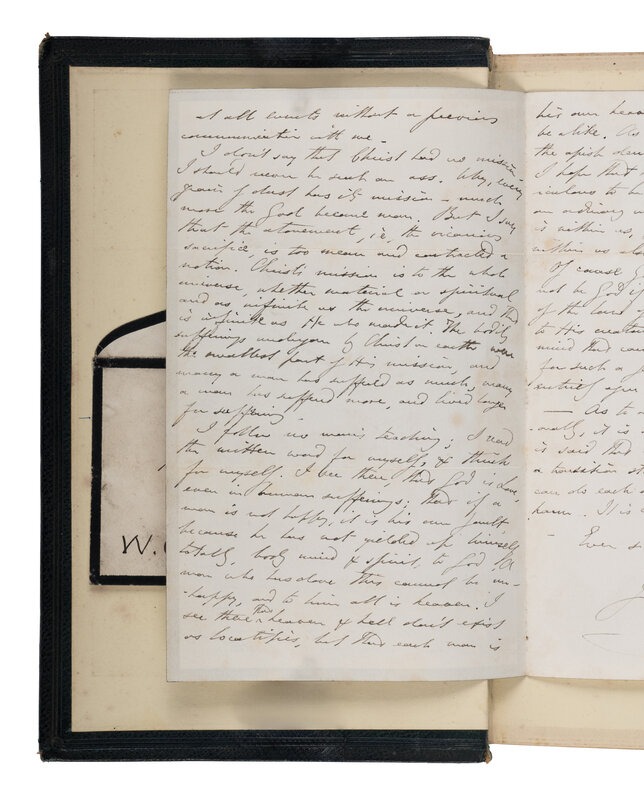 at all events without a previous
communication with me.
I don't say that Christ had no mission
I should never be such an ass. Why, every
grain of dust has its mission - much
more the God become man. But I say
that the atonement, i.e. the vicarious
sacrifice, is too mean and contracted a
notion. Christ's mission is to the whole
universe, whether material or spiritual
and as infinite as the universe, and that
is infinite as He who made it. The bodily
sufferings undergone by Christ on earth were
the smallest part of His mission, and
many a man has suffered as much, many
a man has suffered more, and lived longer
for suffering.
I follow no man's teaching; I read
the written word for myself, & think
for myself. I see there that God is Love,
even in human sufferings; that if a
man is not happy, it is his own fault
because he has not yielded up himself
totally, body mind & spirit, to God. A
man who has done this cannot be un-
-happy, and to him all is heaven. I
see there that heaven & hell don't exist
as localities, but that each man is
his own
be alike. As
the apish
I hope that
-iculous to
an ordinary
is within us,
within us
Of course
not be God if
of the land of
to His
mind that
for such a
entirely
— As to
is said that
a transition
can do each
harm. It is
Ever
W.